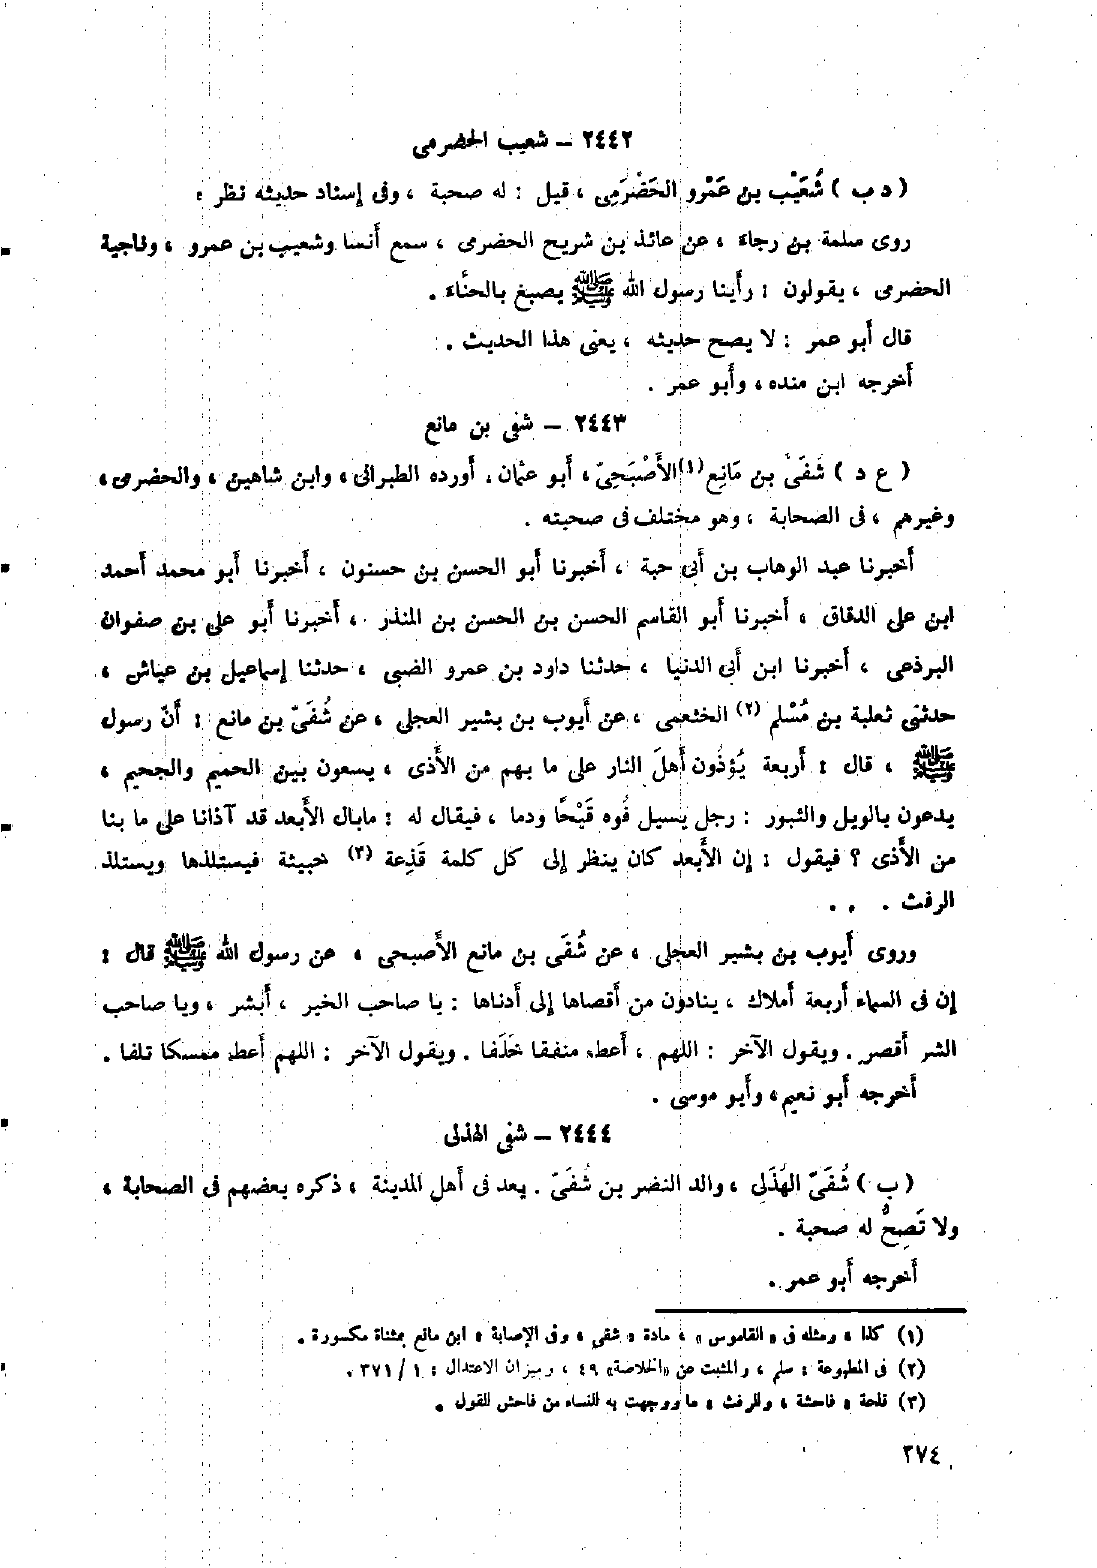 ٢٤٤٢ – شعيب الحضرمى
( د ب ) شُعَيْب بن عَمْرو الحَضْرَمِى ، قيل : له صحبة ، وفى إسناد حديثه نظر ؛
روى سلمة بن رجاء ، عن عائذ بن شريح الحضرمى ، سمع أنسا وشعيب بن عمرو ، وناجية
الحضرمى ، يقولون : رأينا رسول الله ﷺ يصبغ بالحنَّاء .
قال أبو عمر : لا يصح حديثه ، يعنى هذا الحديث .
أخرجه ابن منده ، وأبو عمر .
٢٤٤٣ – شفى بن مانع
( ع د ) شُفَىّ بن مَانِع (١) الأَصْبَحِىّ ، أبو عثمان . أورده الطبرانى ، وابن شاهين ، والحضرمى ،
وغيرهم ، فى الصحابة ، وهو مختلف فى صحبته .
أخبرنا عبد الوهاب بن أبى حبة ، أخبرنا أبو الحسن بن حسنون ، أخبرنا أبو محمد أحمد
ابن على الدقاق ، أخبرنا أبو القاسم الحسن بن الحسن بن المنذر ، أخبرنا أبو على بن صفوان
البرذعى ، أخبرنا ابن أبى الدنيا ، حدثنا داود بن عمرو الضبى ، حدثنا إسماعيل بن عياش ،
حدثنى ثعلبة بن مُسْلم (٢) الخثعمى ، عن أيوب بن بشير العجلى ، عن شُفَىّ بن مانع : أنّ رسول
ﷺ ، قال : أربعة يُؤذُون أهلَ النار على ما بهم من الأذى ، يسعون بين الحميم والجحيم ،
يدعون بالويل والثبور : رجل يسيل فُوه قَيْحًا ودما ، فيقال له : مابال الأبعد قد آذانا على ما بنا
من الأذى ؟ فيقول : إن الأبعد كان ينظر إلى كل كلمة قَذِعة (٣) خبيثة فيستلذها ويستلذ
الرفث . . .
وروى أيوب بن بشير العجلى ، عن شُفَى بن مانع الأصبحى ، عن رسول الله ﷺ قال :
إن فى السماء أربعة أملاك ، ينادون من أقصاها إلى أدناها : يا صاحب الخير ، أبشر ، ويا صاحب
الشر أقصر . ويقول الآخر : اللهم ، أعط منفقا خَلَفا . ويقول الآخر : اللهم أعط ممسكا تلفا .
أخرجه أبو نعيم ، وأبو موسى .
٢٤٤٤ – شفى الهذلى
( ب ) شُفَىّ الهُذَلِى ، والد النضر بن شُفَىّ . يعد فى أهل المدينة ، ذكره بعضهم فى الصحابة ،
ولا تَصِحُّ له صحبة .
أخرجه أبو عمر .
(١) كذا ، ومثله فى « القاموس » ، مادة « شفى ، وفى الإصابة » ابن ماتع بمثناة مكسورة .
(٢) فى المطبوعة : سلم ، والمثبت عن «الخلاصة» ٤٩ ، وميزان الاعتدال : ١ / ٣٧١ .
(٣) قذعة « فاحشة ، والرفث » ما ووجهت به النساء من فاحش القول .
٢٧٤